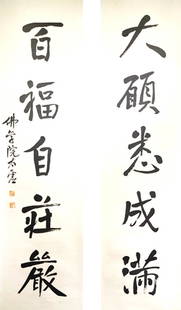 大願悉成滿
百福自莊嚴
佛学院太虛